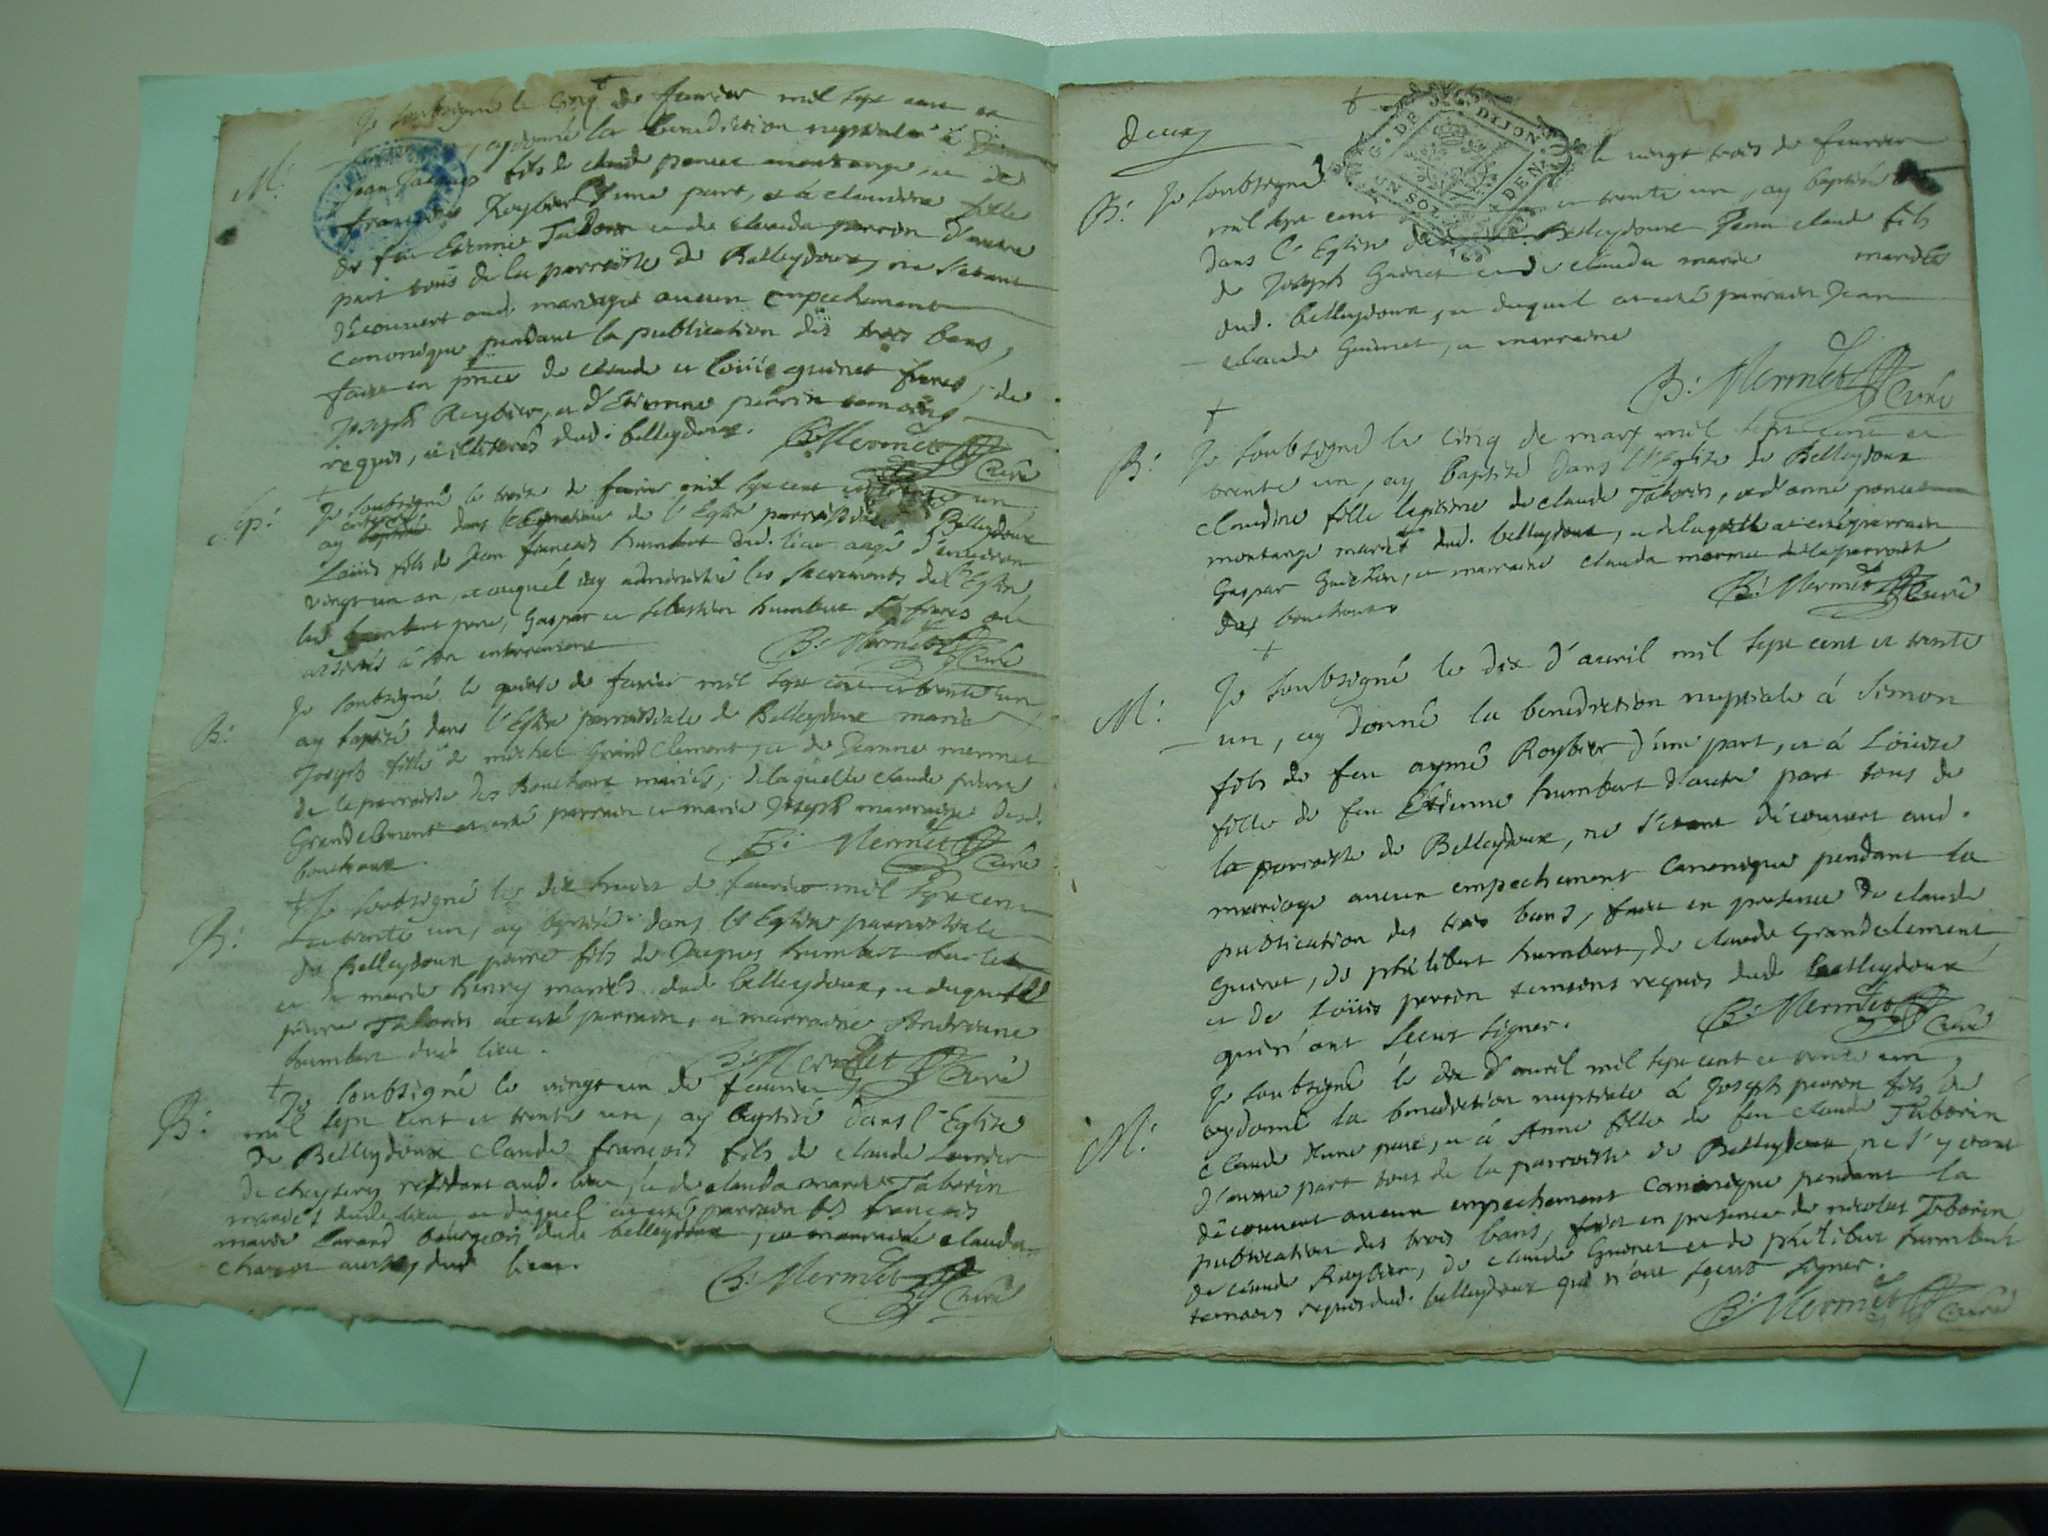 Je soubsigné le cinq de feuvrier mil sept cent et
M: ay donné la benediction nuptiale à
Jean Jacques fils de claude poncet montange, et de
françoise Reybier d'une part, et à claudine fille
de feu Etienne Taborin et de clauda perrin d'autre
part tous de la parroisse de Belleydoux, ne s'etant
découvert aud. mariage aucun empechement
canonique pendant la publication des trois bans,
fait en pñce de claude et Loüis guinet freres, de
Joseph Reybier, et d'Etienne perrin temoins
requis, et illiterés dud. belleydoux. B: Mermet Curé
Sep: Je soubsigné le treize de feuvrier mil sept cent et trente un
ay enterré dans le cimetiere de l'Eglise parroissiale de Belleydoux
Loüis fils de Jean françois humbert dud. lieu aagé d'environ
vingt un an, et auquel j'ay administré les sacrements de l'Eglise,
led. humbert pere, Gaspar et sebastien humbert ses freres ont
assistés à son enterrement B: Mermet Curé
B: Je soubsigné le quinze de feuvrier mil sept cent et trente un
ay baptisé dans l'Eglise parroissiale de Belleydoux marie
Joseph fille de michel Grand Clement, et de Jeanne mermet
de la parroisse des Bouchoux mariés, de laquelle claude pierre
Grandclement a esté parrain et marie Joseph marraine desd.
bouchoux. B: Mermet Curé
B: Je soubsigné le dix huict de feuvrier mil sept cent
et trente un, ay baptisé dans l'Eglise parroissiale
de Belleydoux pierre fils de Jacques humbert
et de marie henry mariés dud. belleydoux, et duquel
pierre Taborin a esté parrain, et marraine Andreanne
humbert dud. lieu. B: Mermet Curé
B: Je soubsigné le vingt un de feuvrier
mil sept cent et trente un, ay baptisé dans l'Eglise
de Belleydoux claude françois fils de claude
de cheysery residant aud. lieu, et de clauda marie Taborin
mariés dud. lieu et duquel a esté parrain françois
marie bourgeois dud. belleydoux, et marraine clauda
aussy dud. lieu. B: Mermet Curé
deux
G. DE DIJON
UN SOL DEN
B: Je soubsigné le vingt trois de feuvrier
mil sept cent et trente un, ay baptisé
dans l'Eglise de Belleydoux Jean claude fils
de Joseph Guinet et de clauda marie mariés
dud. belleydoux, et duquel a esté parrain Jean
claude Guinet, et marraine
B: Mermet Curé
B: Je soubsigné le cinq de mars mil sept cent et
trente un, ay baptisé dans l'Eglise de Belleydoux
claudine fille legitime de claude Taborin, et d'anne poncet
montange mariés dud. belleydoux, et de laquelle a esté parrain
Gaspar Guichon, et marraine clauda mermet de la parroisse
des bouchoux B: Mermet Curé
M: Je soubsigné le dix d'avril mil sept cent et trente
un, ay donné la benediction nuptiale à Simon
fils de feu aymé Reybier d'une part, et à Loüise
fille de feu Etienne humbert d'autre part tous de
la parroisse de Belleydoux, ne s'etant découvert aud.
mariage aucun empechement canonique pendant la
publication des trois bans, fait en presence de claude
Guinet, de philibert humbert, de claude Grandclement,
et de Loüis perrin temoins requis dud. belleydoux
qui n'ont sceut signer. B: Mermet Curé
M: Je soubsigné le dix d'avril mil sept cent et trente un,
ay donné la benediction nuptiale à Joseph perrin fils de
claude d'une part, et à Anne fille de feu claude Taborin
d'autre part tous de la parroisse de Belleydoux, ne s'y etant
découvert aucun empechement canonique pendant la
publication des trois bans, fait en presence de nicolas Taborin
de claude Reybier, de claude Guinet et de philibert humbert
temoins requis dud. belleydoux qui n'ont sceut signer.
B: Mermet Curé